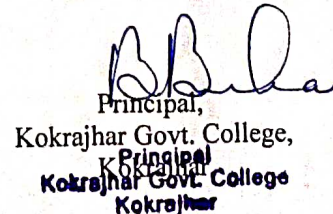 Principal,
Kokrajhar Govt. College,
Kokrajhar
Principal
Kokrajhar Govt. College
Kokrajhar